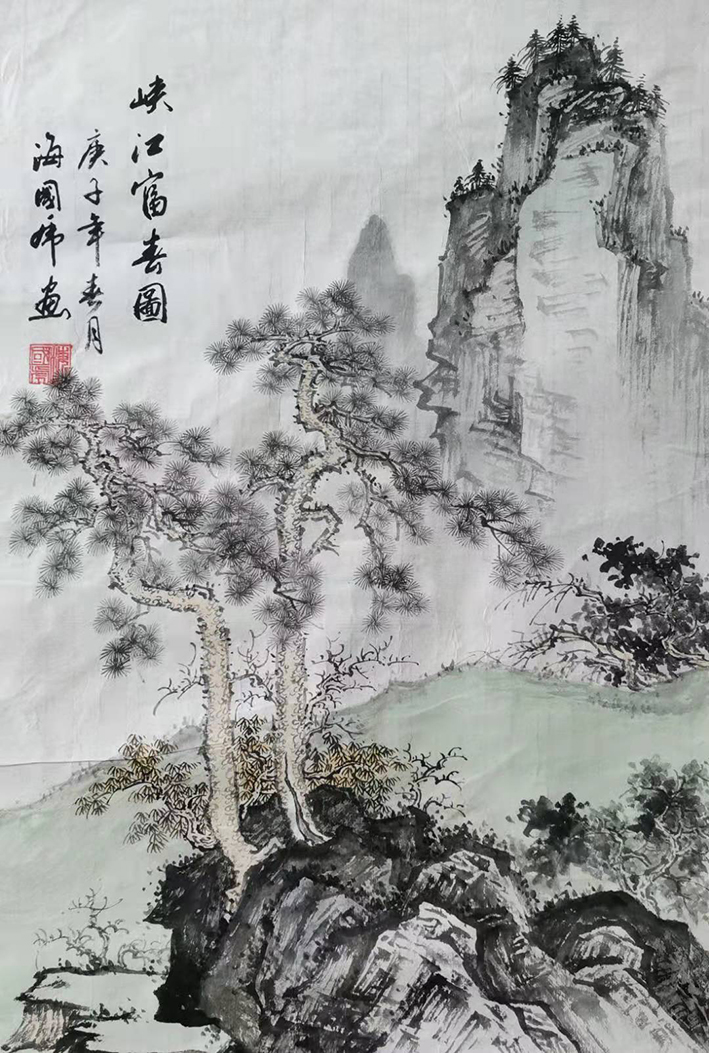 峡江富春圖
庚子年春月
海國師畫